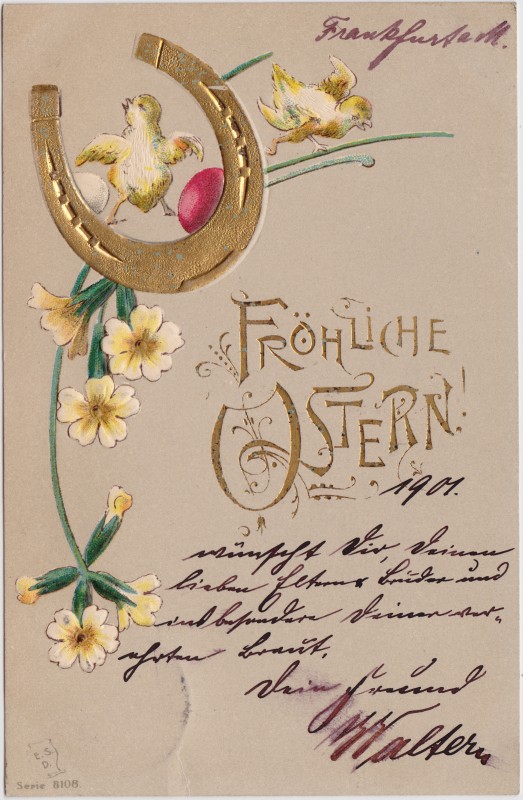 Frankfurt a/M.
FRÖHLICHE
OSTERN!
1901.
wünscht Dir, Deinen
lieben Eltern, Brüder und
insbesondere Deiner ver-
ehrten Braut.
Dein Freund
Walter
E.S.
D.
Serie 8108.